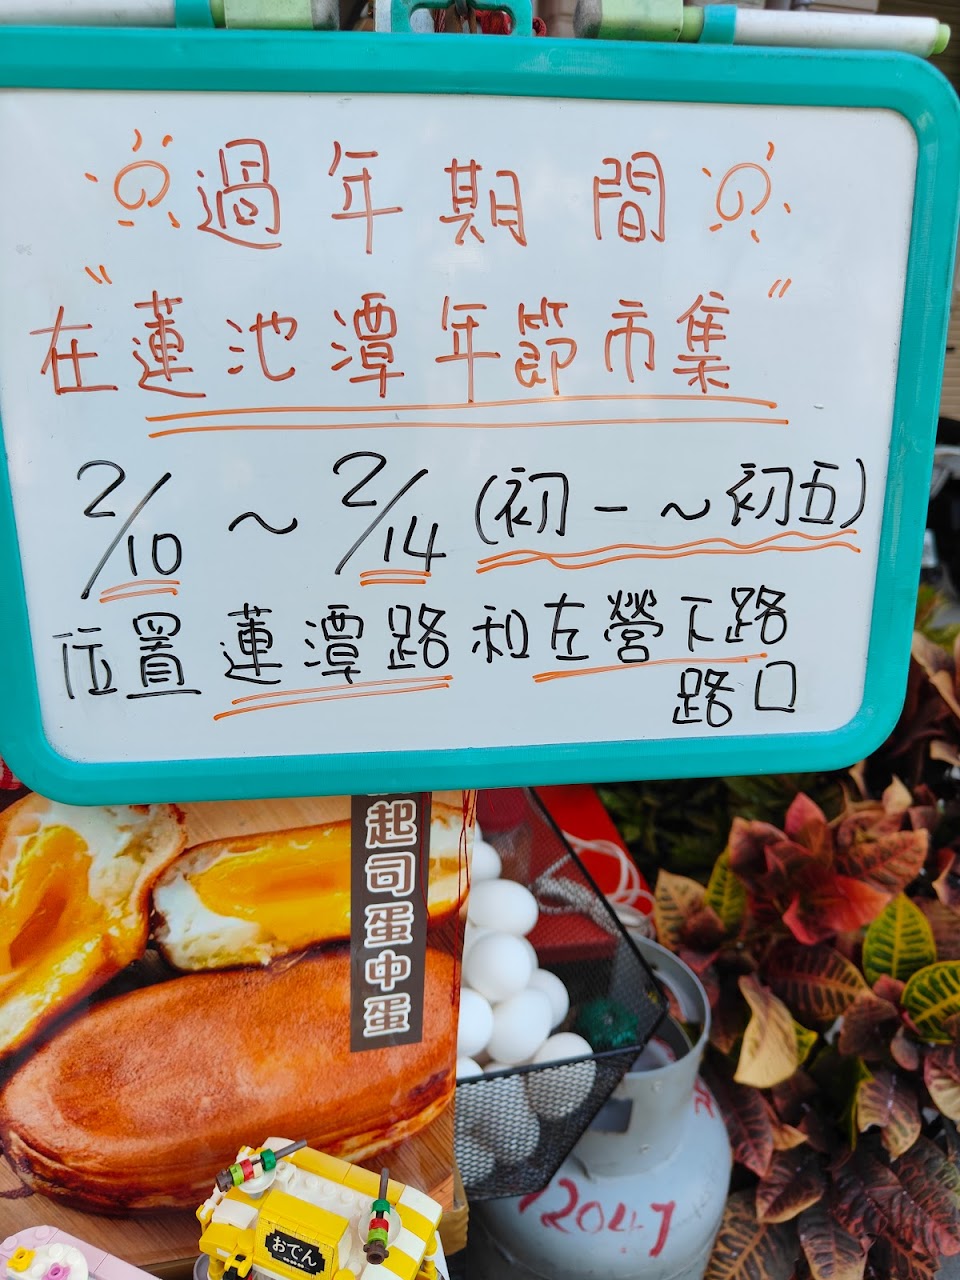 過年期間
"在蓮池潭年節市集"
2/10 ~ 2/14 (初一~初五)
位置蓮潭路和左營下路
路口
起司蛋中蛋
おでん
22047